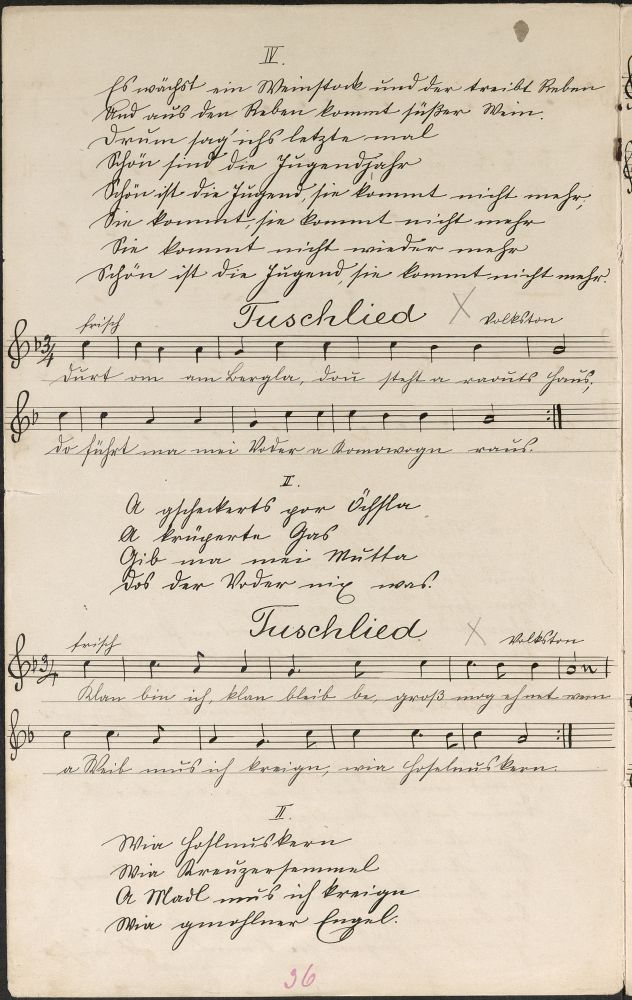 IV.
Es wächst ein Weinstock und der treibt Reben
Und aus den Reben kommt süßer Wein.
Drum sag' ichs letzte mal
Schön sind die Jugendjahr
Schön ist die Jugend, sie kommt nicht mehr,
Sie kommt, sie kommt nicht mehr
Sie kommt nicht wieder mehr
Schön ist die Jugend, sie kommt nicht mehr.
Tuschlied X
frisch Volkston
3/4
Durt om am Bergla, dou steht a raouts Haus,
Do führt ma mei Voder a Komowogn raus.
II.
A gscheckerts por Öchsla
A krüperte Gas
Gib ma mei Mutta
Dos der Voder nix was.
Tuschlied X
frisch Volkston
3/4
Klan bin ich, klan bleib be, groß mog ich net wern
a Weib mus ich kreign, wia Hoselnuskern.
II.
Wia Hoslnuskern
Wia Kreuzersemmel
A Madl mus ich kreign
Wia gmohlner Engel.
36